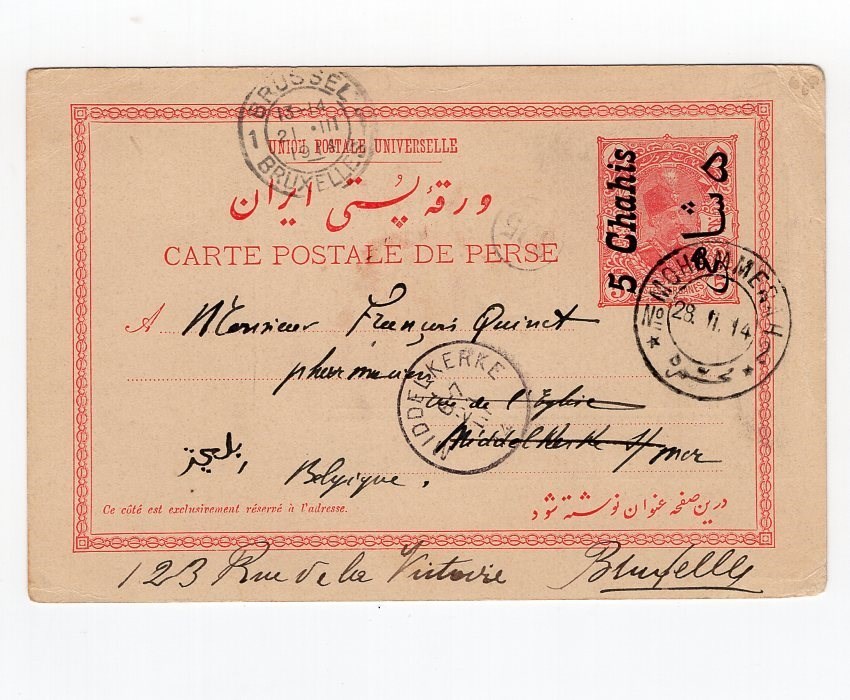 BRUSSEL
1
13-14
21 III
BRUXELLES
UNION POSTALE UNIVERSELLE
ورقهٔ پُستی ایران
CARTE POSTALE DE PERSE
5 Chahis
۵ شاهی
MOHAMMERAH
No 2
28. II. 14
محمره
A Monsieur François Quinet
pharmacien
MIDDELKERKE
rue de l'Eglise
Middelkerke s/mer
بلجیک
Belgique.
Ce côté est exclusivement réservé à l'adresse.
درین صفحه عنوان نوشته شود
123 Rue de la Victoire Bruxelles